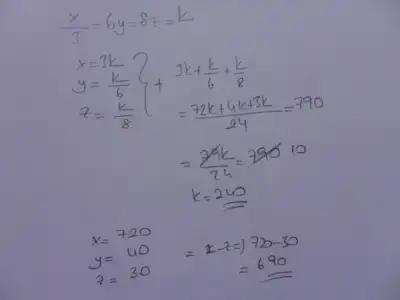 x/3 = 6y = 8z = k
x = 3k
y = k/6
z = k/8
+ 3k + k/6 + k/8
= 72k + 4k + 3k / 24 = 790
= 79k/24 = 790 10
k = 240
x = 720
y = 40
z = 30
= x - z =) 720 - 30
= 690